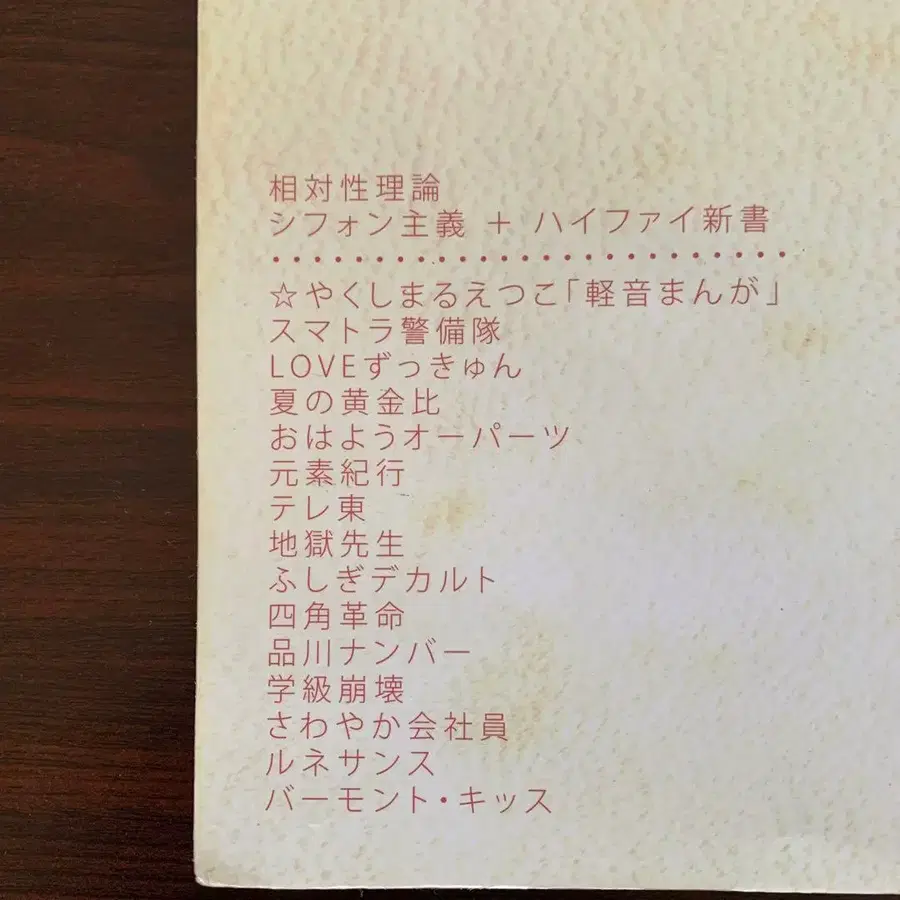 相対性理論
シフォン主義 + ハイファイ新書
☆やくしまるえつこ「軽音まんが」
スマトラ警備隊
LOVEずっきゅん
夏の黄金比
おはようオーパーツ
元素紀行
テレ東
地獄先生
ふしぎデカルト
四角革命
品川ナンバー
学級崩壊
さわやか会社員
ルネサンス
バーモント・キッス